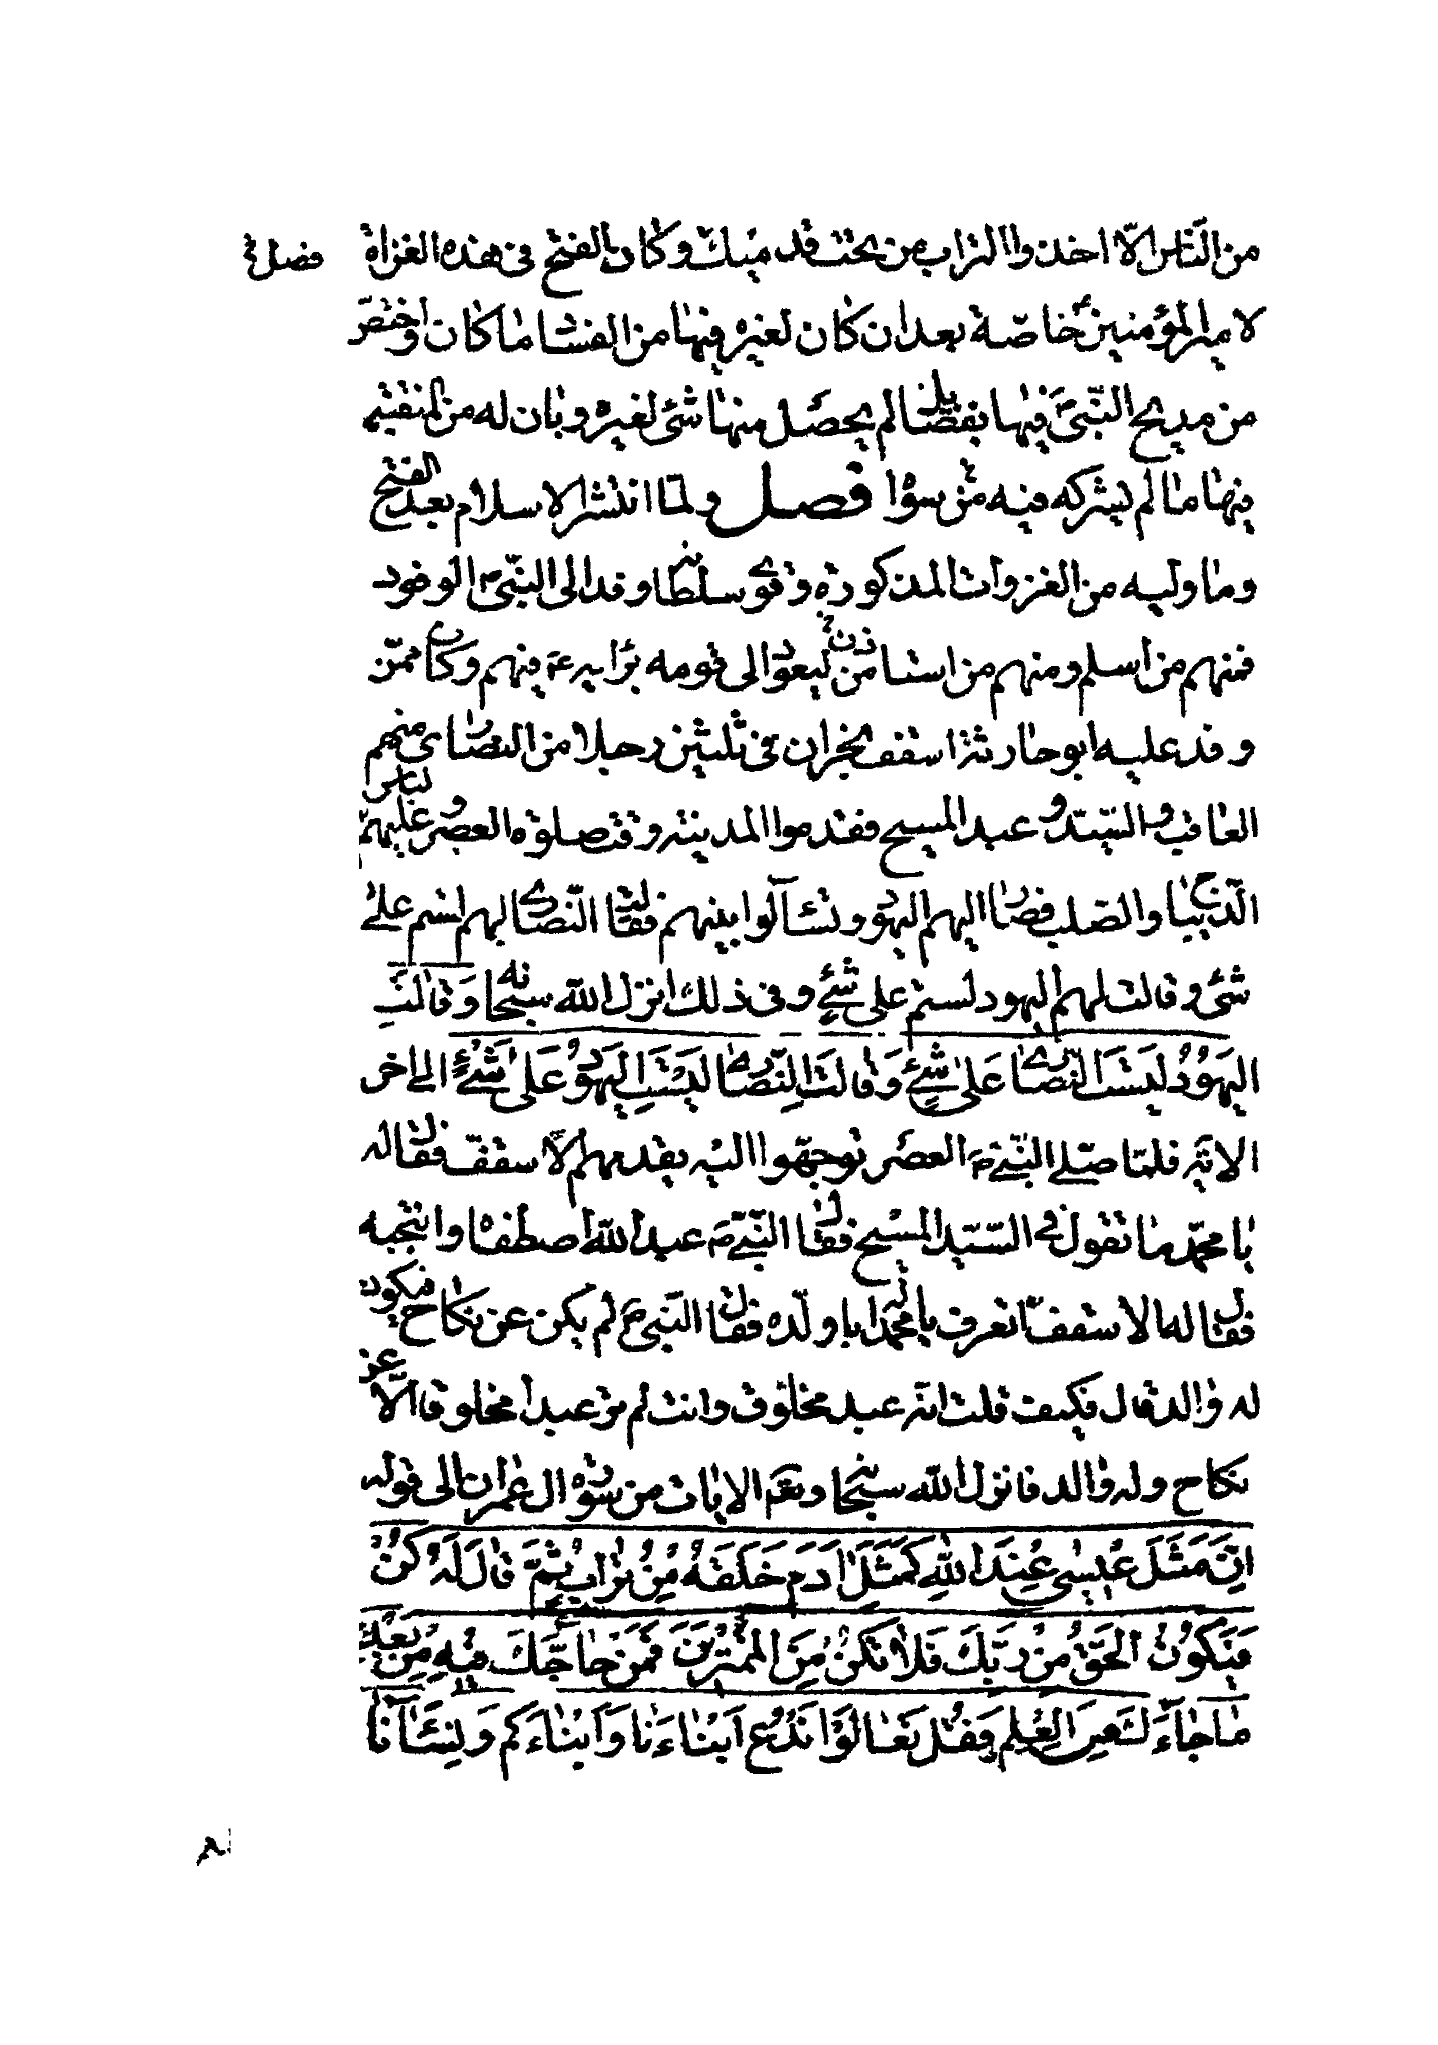 من النّاس الّا اخذوا التراب من تحت قدميك وكان الفتح فى هذه الغزاة
فضل فى
لامير المؤمنين ع خاصّة بعد ان كان لغيره فيها من الفساد ما كان واختصّ
من مديح النّبىّ ص فيها بفضايل لم يحصل منها شئ لغيره وبان له من المنقبة
فيها ما لم يشركه فيه من سواه فصل ولمّا انتشر الاسلام بعد الفتح
وما وليه من الغزوات المذكورة وقوى سلطانه وفد الى النّبىّ ص الوفود
فمنهم من اسلم ومنهم من استامن ليعود الى قومه برايه ع فيهم وكان ممّن
وفد عليه ابو حارثة اسقف نجران فى ثلثين رجلا من النصارى منهم
العاقب والسّيّد وعبد المسيح فقدموا المدينة وقت صلوة العصر وعليهم لباس
الدّيباج والصّلب فصار اليهم اليهود وتسآئلوا بينهم فقالت النّصارى لهم لستم على
شئ وقالت لهم اليهود لستم على شئ وفى ذلك انزل الله سبحانه وَقَالَتِ
الْيَهُودُ لَيْسَتِ النَّصَارٰى عَلٰى شَيْءٍ وَقَالَتِ النَّصَارٰى لَيْسَتِ الْيَهُودُ عَلٰى شَيْءٍ الى اخر
الاية فلمّا صلّى النّبىّ ص العصر توجّهوا اليه يقدمهم الاسقف فقال له
يا محمّد ما تقول فى السّيّد المسيح فقال النّبىّ ص عبد الله اصطفاه وانتجبه
فقال له الاسقف اتعرف يا محمّد له ابا ولّده فقال النّبىّ ع لم يكن عن نكاح فيكون
له والد قال فكيف قلت انّه عبد مخلوق وانت لم تر عبدا مخلوقا الّا عن
نكاح وله والد فانزل الله سبحانه وتعم الايات من سورة ال عمران الى قوله
اِنَّ مَثَلَ عِيسٰى عِنْدَ اللهِ كَمَثَلِ اٰدَمَ خَلَقَهُ مِنْ تُرَابٍ ثُمَّ قَالَ لَهُ كُنْ
فَيَكُونُ الْحَقُّ مِنْ رَبِّكَ فَلَا تَكُنْ مِنَ الْمُمْتَرِينَ فَمَنْ حَاجَّكَ فِيهِ مِنْ بَعْدِ
مَا جَآءَكَ مِنَ الْعِلْمِ فَقُلْ تَعَالَوْا نَدْعُ اَبْنَاءَنَا وَاَبْنَاءَكُمْ وَنِسَآءَنَا